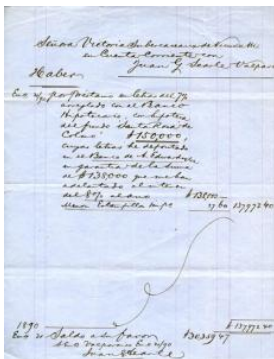 Señora Victoria Subercaseaux de Vicuña M.
en Cuenta Corriente con
Juan G. Searle Valpso
Haber
Por préstamo en letras del 7%
arreglado con el Banco
Hipotecario, con hipoteca
del fundo Santa Rosa de
Colmo $150,000,
cuyas letras he depositado
en el Banco de A. Edwards
en garantía de la suma
de $138,000 que me han
adelantado al interes
del 8% al año $138,000
Menos Estampilla Impto 27 60 137972 40
$137972 40
1890
Enº 20 Saldo a su favor $30339 47
S.E.O. Valparaiso Enº 20/90
Juan G Searle